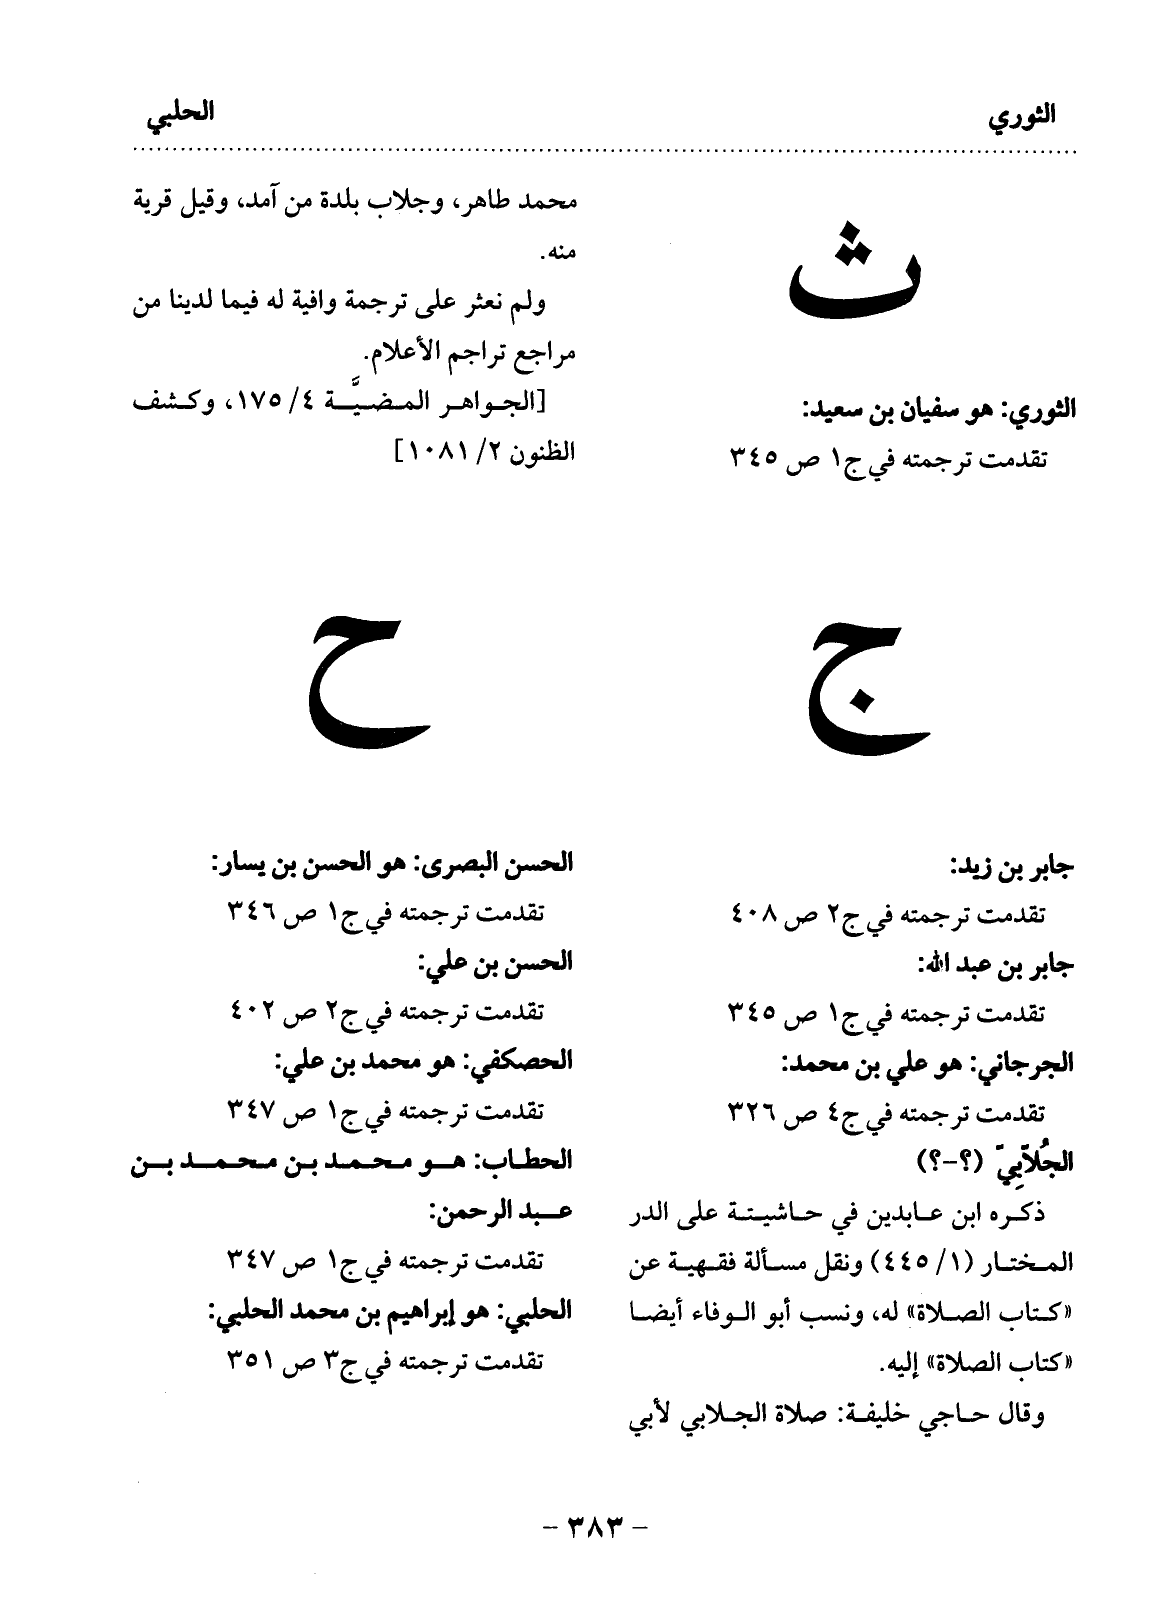 الثوري
الحلبي
ث
الثوري: هو سفيان بن سعيد:
تقدمت ترجمته في ج١ ص ٣٤٥
ج
جابر بن زيد:
تقدمت ترجمته في ج٢ ص ٤٠٨
جابر بن عبد الله:
تقدمت ترجمته في ج١ ص ٣٤٥
الجرجاني: هو علي بن محمد:
تقدمت ترجمته في ج٤ ص ٣٢٦
الجُلاّبِيّ (؟-؟)
ذكره ابن عابدين في حاشيتة على الدر
المختار (١/ ٤٤٥) ونقل مسألة فقهية عن
«كتاب الصلاة» له، ونسب أبو الوفاء أيضا
«كتاب الصلاة» إليه.
وقال حاجي خليفة: صلاة الجلابي لأبي
محمد طاهر، وجلاب بلدة من آمد، وقيل قرية
منه.
ولم نعثر على ترجمة وافية له فيما لدينا من
مراجع تراجم الأعلام.
[الجواهر المضيَّة ٤/ ١٧٥، وكشف
الظنون ٢/ ١٠٨١]
ح
الحسن البصرى: هو الحسن بن يسار:
تقدمت ترجمته في ج١ ص ٣٤٦
الحسن بن علي:
تقدمت ترجمته في ج٢ ص ٤٠٢
الحصكفي: هو محمد بن علي:
تقدمت ترجمته في ج١ ص ٣٤٧
الحطاب: هو محمد بن محمد بن
عبد الرحمن:
تقدمت ترجمته في ج١ ص ٣٤٧
الحلبي: هو إبراهيم بن محمد الحلبي:
تقدمت ترجمته في ج٣ ص ٣٥١
- ٣٨٣ -